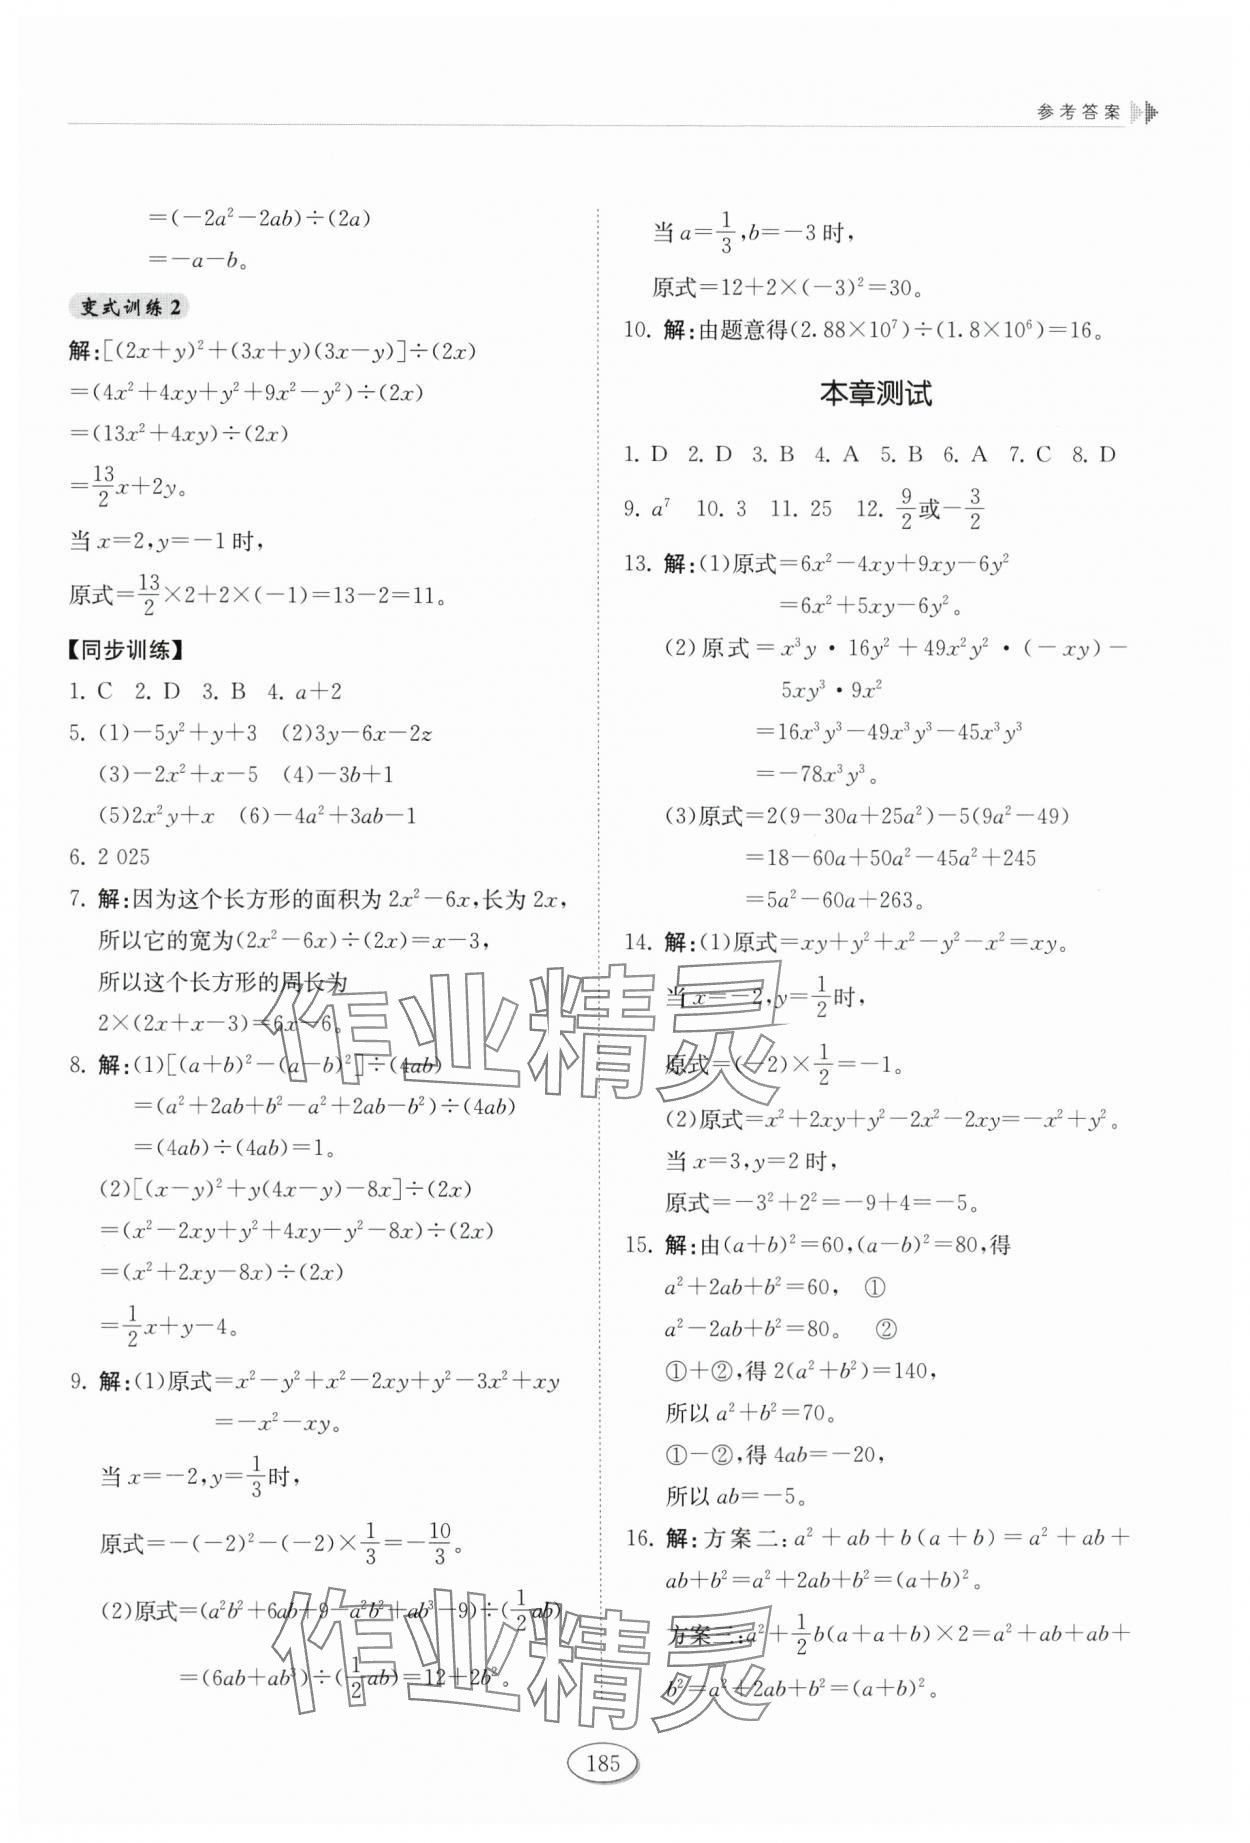 参考答案
=(-2a²-2ab)÷(2a)
=-a-b。
变式训练2
解:[(2x+y)²+(3x+y)(3x-y)]÷(2x)
=(4x²+4xy+y²+9x²-y²)÷(2x)
=(13x²+4xy)÷(2x)
=13/2x+2y。
当x=2,y=-1时,
原式=13/2×2+2×(-1)=13-2=11。
【同步训练】
1. C 2. D 3. B 4. a+2
5. (1)-5y²+y+3 (2)3y-6x-2z
(3)-2x²+x-5 (4)-3b+1
(5)2x²y+x (6)-4a²+3ab-1
6. 2 025
7. 解:因为这个长方形的面积为2x²-6x,长为2x,
所以它的宽为(2x²-6x)÷(2x)=x-3,
所以这个长方形的周长为
2×(2x+x-3)=6x-6。
8. 解:(1)[(a+b)²-(a-b)²]÷(4ab)
=(a²+2ab+b²-a²+2ab-b²)÷(4ab)
=(4ab)÷(4ab)=1。
(2)[(x-y)²+y(4x-y)-8x]÷(2x)
=(x²-2xy+y²+4xy-y²-8x)÷(2x)
=(x²+2xy-8x)÷(2x)
=1/2x+y-4。
9. 解:(1)原式=x²-y²+x²-2xy+y²-3x²+xy
=-x²-xy。
当x=-2,y=1/3时,
原式=-(-2)²-(-2)×1/3=-10/3。
(2)原式=(a²b²+6ab+9-a²b²+ab³-9)÷(1/2ab)
=(6ab+ab³)÷(1/2ab)=12+2b²。
当a=1/3,b=-3时,
原式=12+2×(-3)²=30。
10. 解:由题意得(2.88×10⁷)÷(1.8×10⁶)=16。
本章测试
1. D 2. D 3. B 4. A 5. B 6. A 7. C 8. D
9. a⁷ 10. 3 11. 25 12. 9/2或-3/2
13. 解:(1)原式=6x²-4xy+9xy-6y²
=6x²+5xy-6y²。
(2)原式=x³y·16y²+49x²y²·(-xy)-
5xy³·9x²
=16x³y³-49x³y³-45x³y³
=-78x³y³。
(3)原式=2(9-30a+25a²)-5(9a²-49)
=18-60a+50a²-45a²+245
=5a²-60a+263。
14. 解:(1)原式=xy+y²+x²-y²-x²=xy。
当x=-2,y=1/2时,
原式=(-2)×1/2=-1。
(2)原式=x²+2xy+y²-2x²-2xy=-x²+y²。
当x=3,y=2时,
原式=-3²+2²=-9+4=-5。
15. 解:由(a+b)²=60,(a-b)²=80,得
a²+2ab+b²=60, ①
a²-2ab+b²=80。 ②
①+②,得2(a²+b²)=140,
所以a²+b²=70。
①-②,得4ab=-20,
所以ab=-5。
16. 解:方案二:a²+ab+b(a+b)=a²+ab+
ab+b²=a²+2ab+b²=(a+b)²。
方案三:a²+1/2b(a+a+b)×2=a²+ab+ab+
b²=a²+2ab+b²=(a+b)²。
作业精灵
作业精灵
185